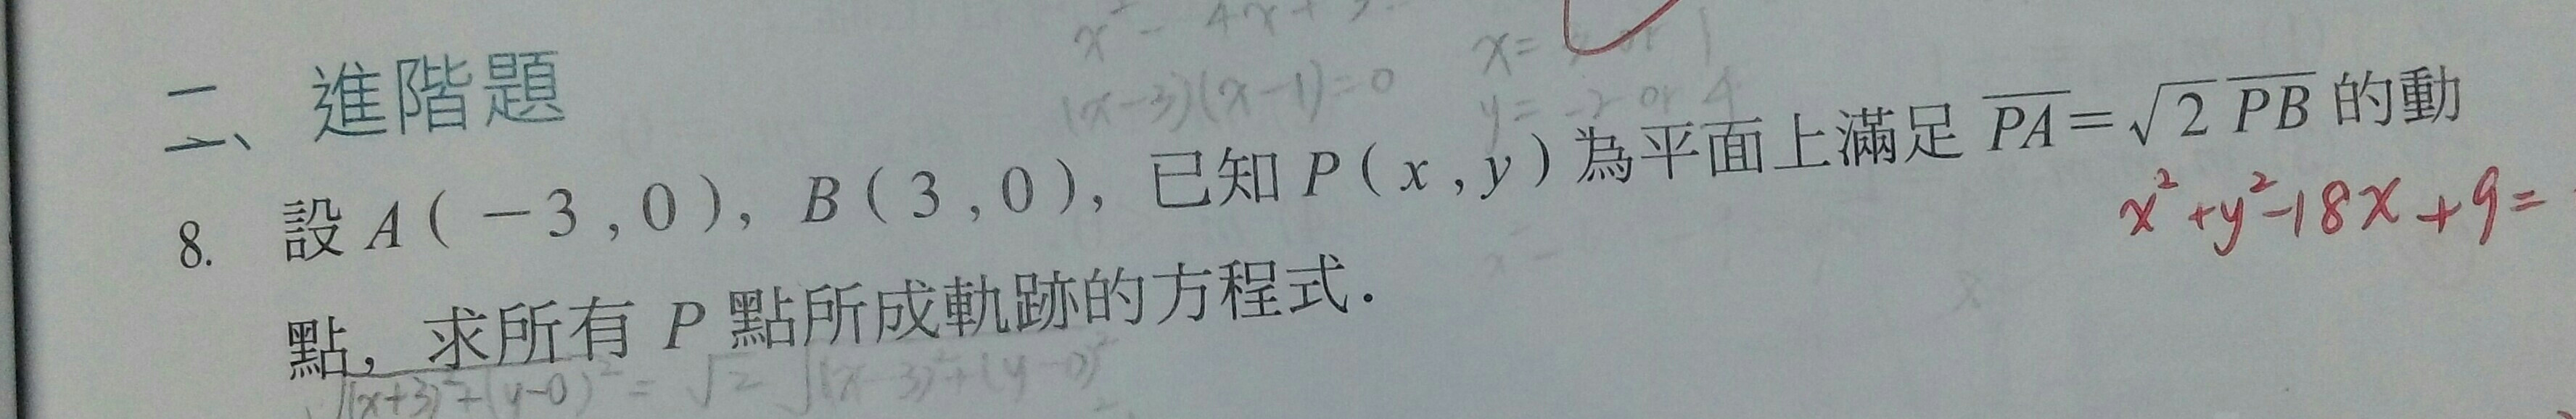 x² - 4x +
(x-3)(x-1)=0
x= or 1
y= -2 or 4
二、進階題
8. 設 A(-3,0), B(3,0), 已知 P(x,y) 為平面上滿足 PA=√2 PB 的動
x²+y²-18x+9=
點, 求所有 P 點所成軌跡的方程式.
√(x+3)²+(y-0)² = √2 √(x-3)²+(y-0)²